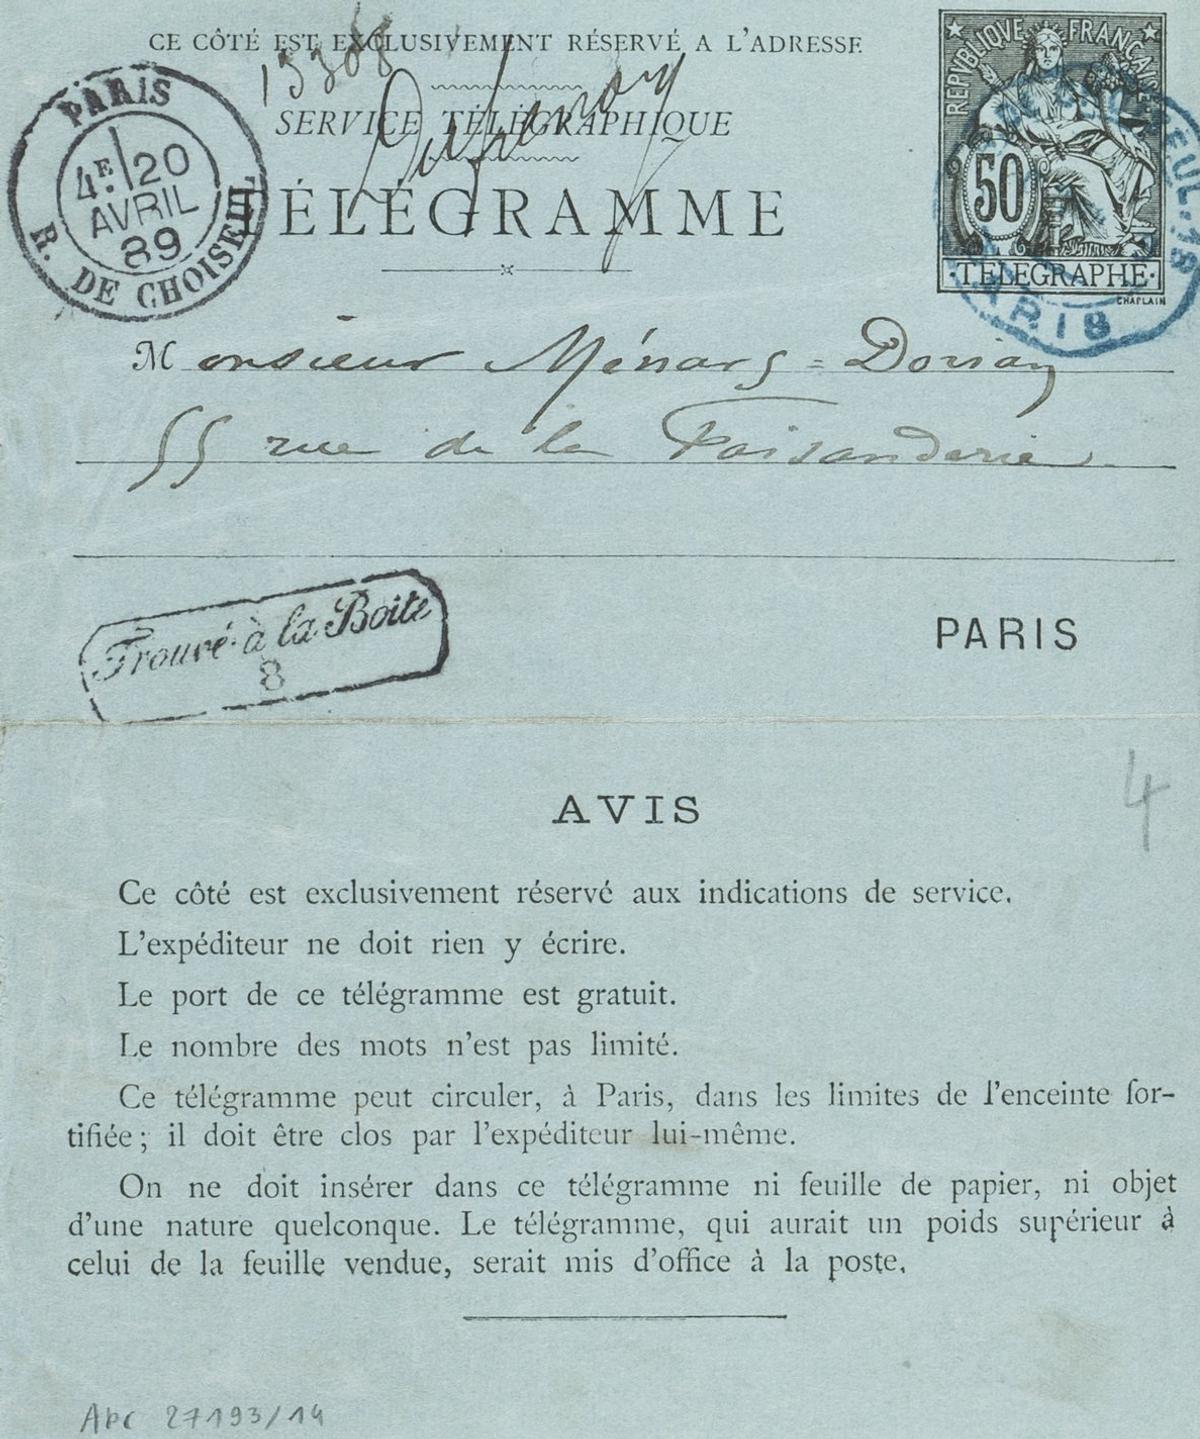 CE CÔTÉ EST EXCLUSIVEMENT RÉSERVÉ A L'ADRESSE
13308
SERVICE TÉLÉGRAPHIQUE
TÉLÉGRAMME
PARIS
4E. 20
AVRIL
89
R. DE CHOISEUL
REPVBLIQVE FRANÇAISE
50
·TELEGRAPHE·
CHAPLAIN
PARIS
Monsieur Ménard=Dorian
55 rue de la Faisanderie.
Trouvé à la Boite
8
PARIS
AVIS
4
Ce côté est exclusivement réservé aux indications de service.
L'expéditeur ne doit rien y écrire.
Le port de ce télégramme est gratuit.
Le nombre des mots n'est pas limité.
Ce télégramme peut circuler, à Paris, dans les limites de l'enceinte for-
tifiée; il doit être clos par l'expéditeur lui-même.
On ne doit insérer dans ce télégramme ni feuille de papier, ni objet
d'une nature quelconque. Le télégramme, qui aurait un poids supérieur à
celui de la feuille vendue, serait mis d'office à la poste.
Apc 27193/14